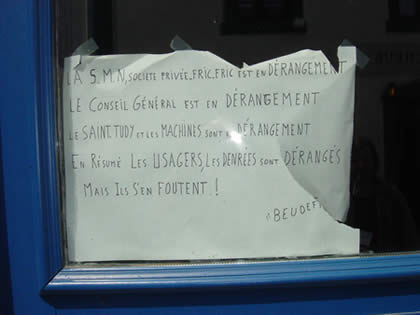 LA S.M.N, SOCIÉTÉ PRIVÉE.FRIC.FRIC EST EN DÉRANGEMENT
LE CONSEIL GÉNÉRAL EST EN DÉRANGEMENT
LE SAINT.TUDY ET LES MACHINES SONT EN DÉRANGEMENT
EN RÉSUMÉ LES USAGERS, LES DENRÉES SONT DÉRANGÉS
MAIS ILS S'EN FOUTENT.!
BEUDEF